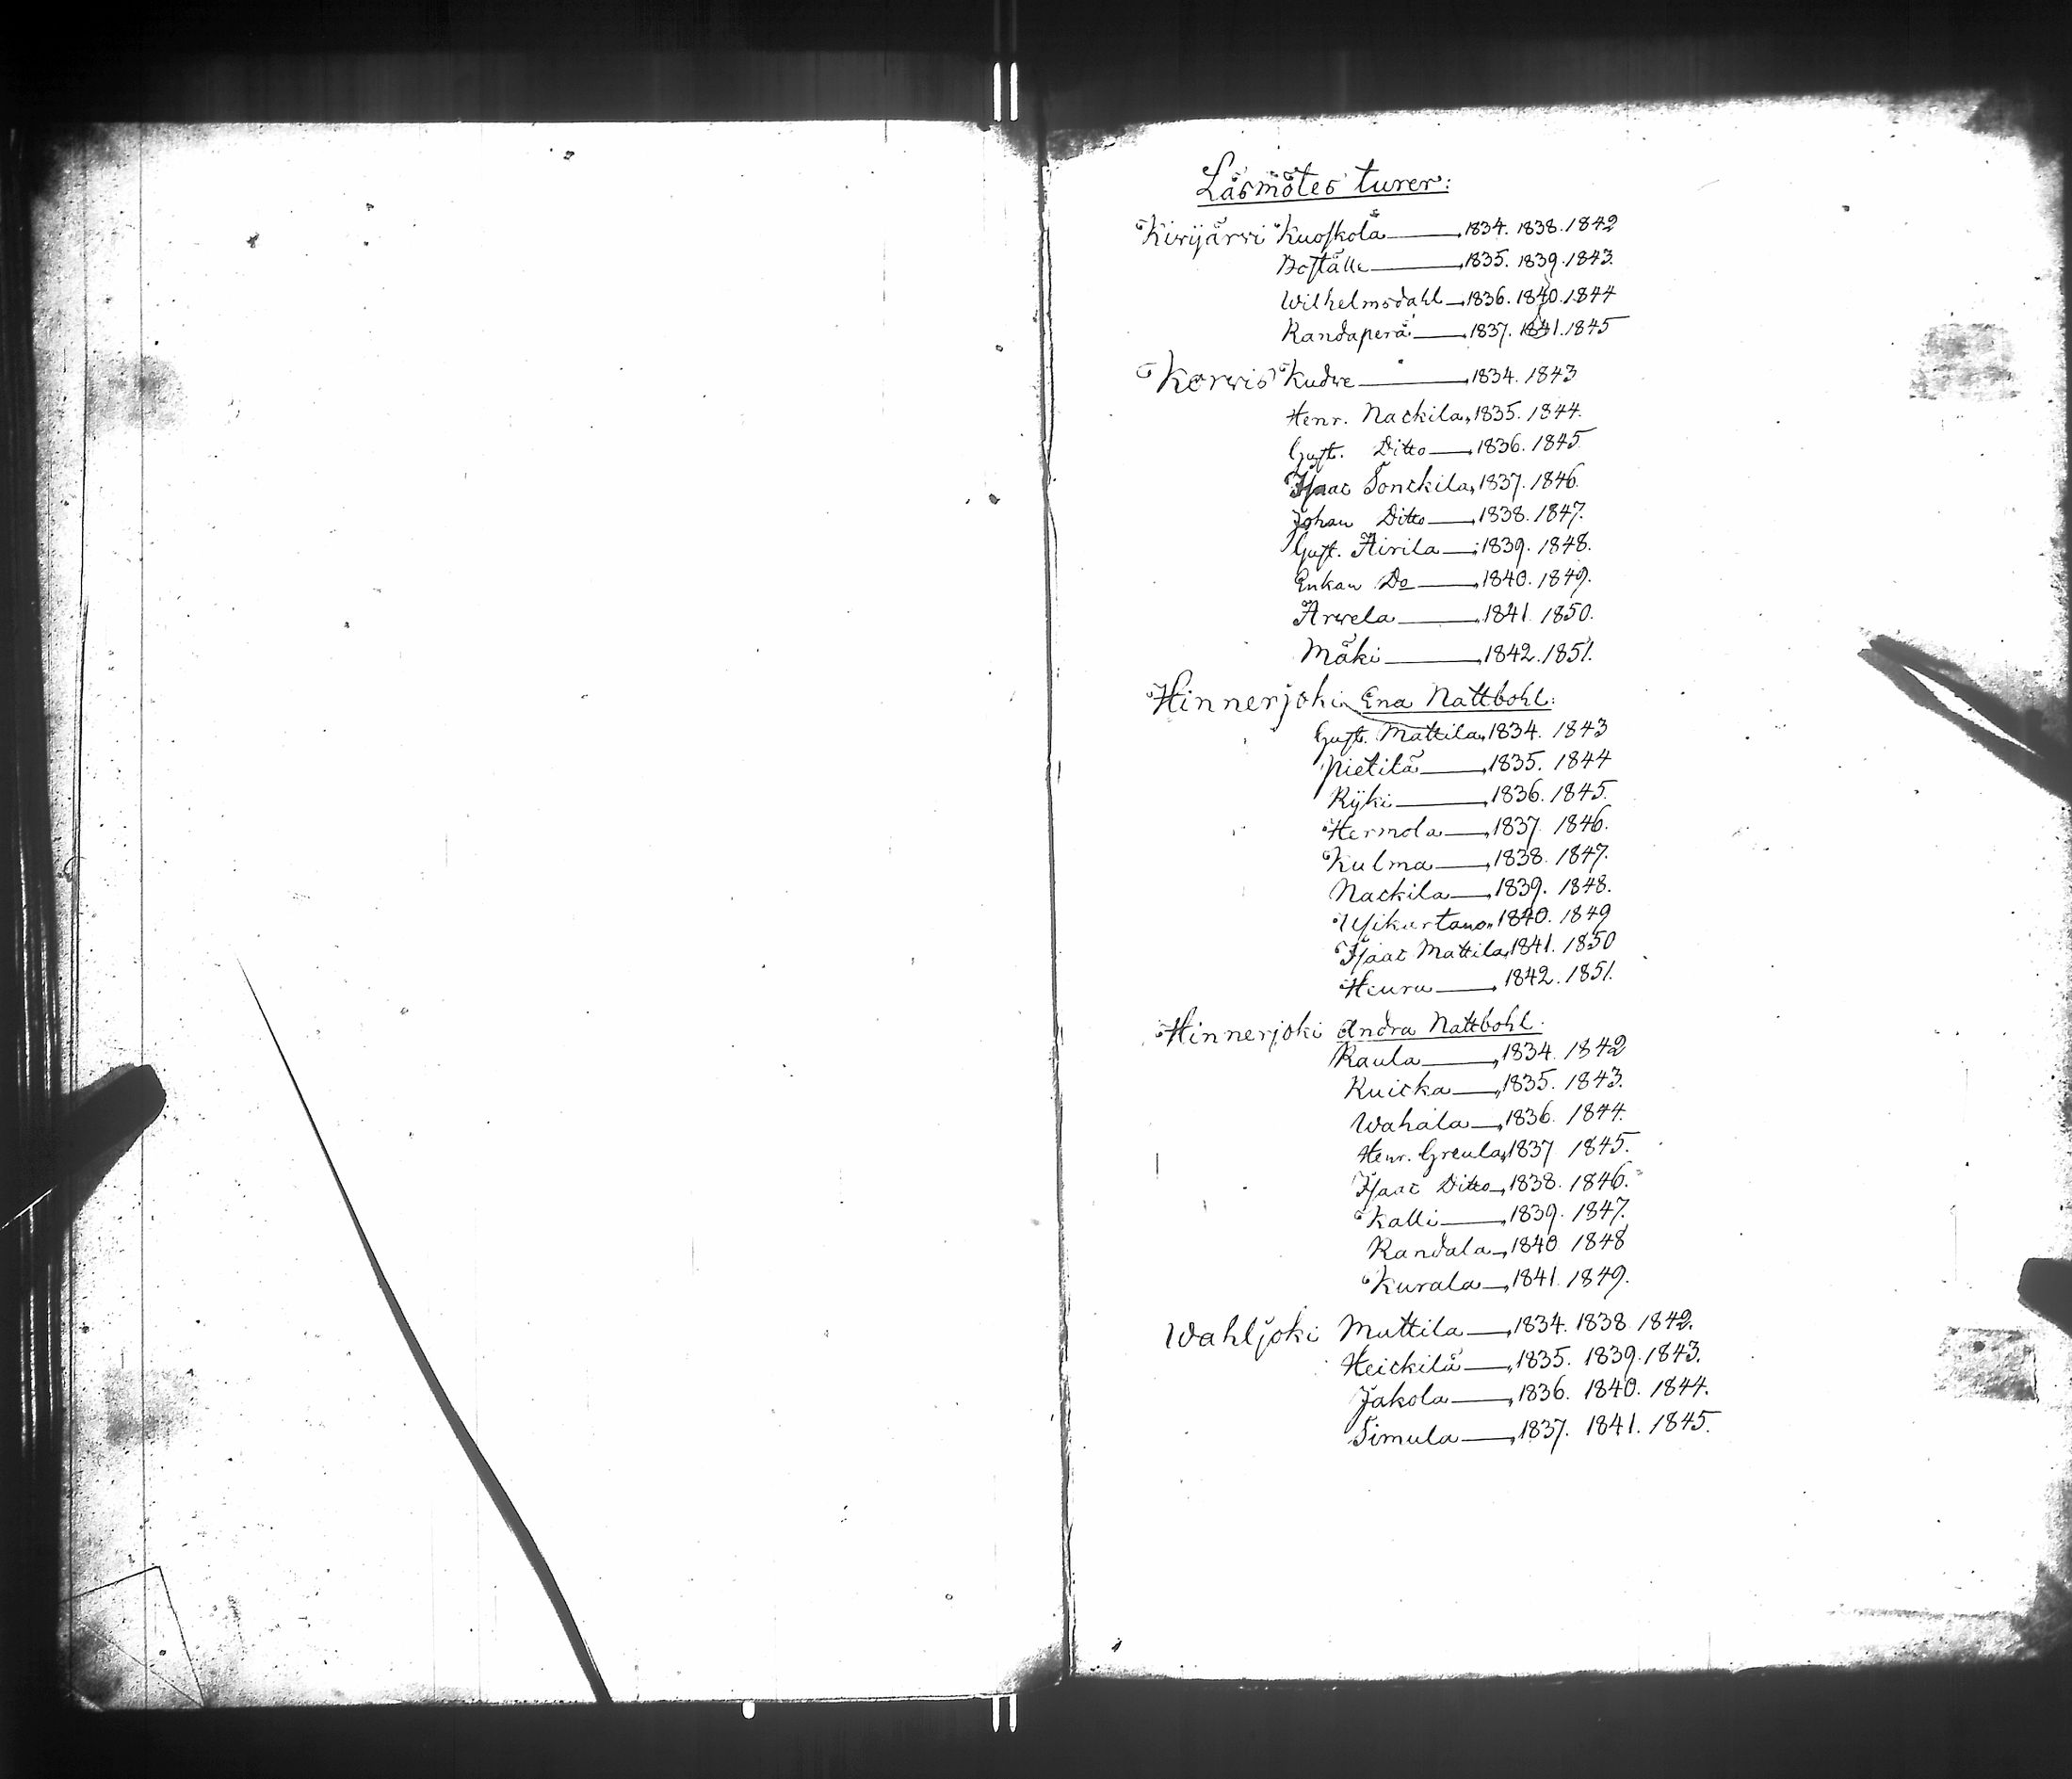 Läsmötes turer:
Kiwijärwi Kuoskola 1834. 1838. 1842
Boställe 1835. 1839. 1843.
Wilhelmsdahl 1836. 1840. 1844
Randaperä 1837. 1841. 1845
Korwis Kudve 1834. 1843
Henr. Nackila 1835. 1844.
Gust. Ditto 1836. 1845
Isaac Tonckila 1837. 1846.
Johan Ditto 1838. 1847.
Gust. Äirila 1839. 1848.
Enkan Do 1840. 1849.
Ärwela 1841. 1850.
Mäki 1842. 1851.
Hinnerjoki Ena Nattbohl:
Gust. Mattila 1834. 1843
Pietilä 1835. 1844
Rijki 1836. 1845.
Hermola 1837. 1846.
Kulma 1838. 1847.
Nackila 1839. 1848.
Ylikartano 1840. 1849
Isaac Mattila 1841. 1850
Heuru 1842. 1851.
Hinnerjoki Andra Nattbohl.
Raula 1834. 1842
Kuicka 1835. 1843.
Wahala 1836. 1844.
Henr. Greula 1837 1845.
Isaac Ditto 1838. 1846.
Kalli 1839. 1847.
Randala 1840 1848
Kurala 1841. 1849.
Wahljoki Mattila 1834. 1838 1842.
Heickilä 1835. 1839. 1843.
Jakola 1836. 1840. 1844.
Simula 1837. 1841. 1845.